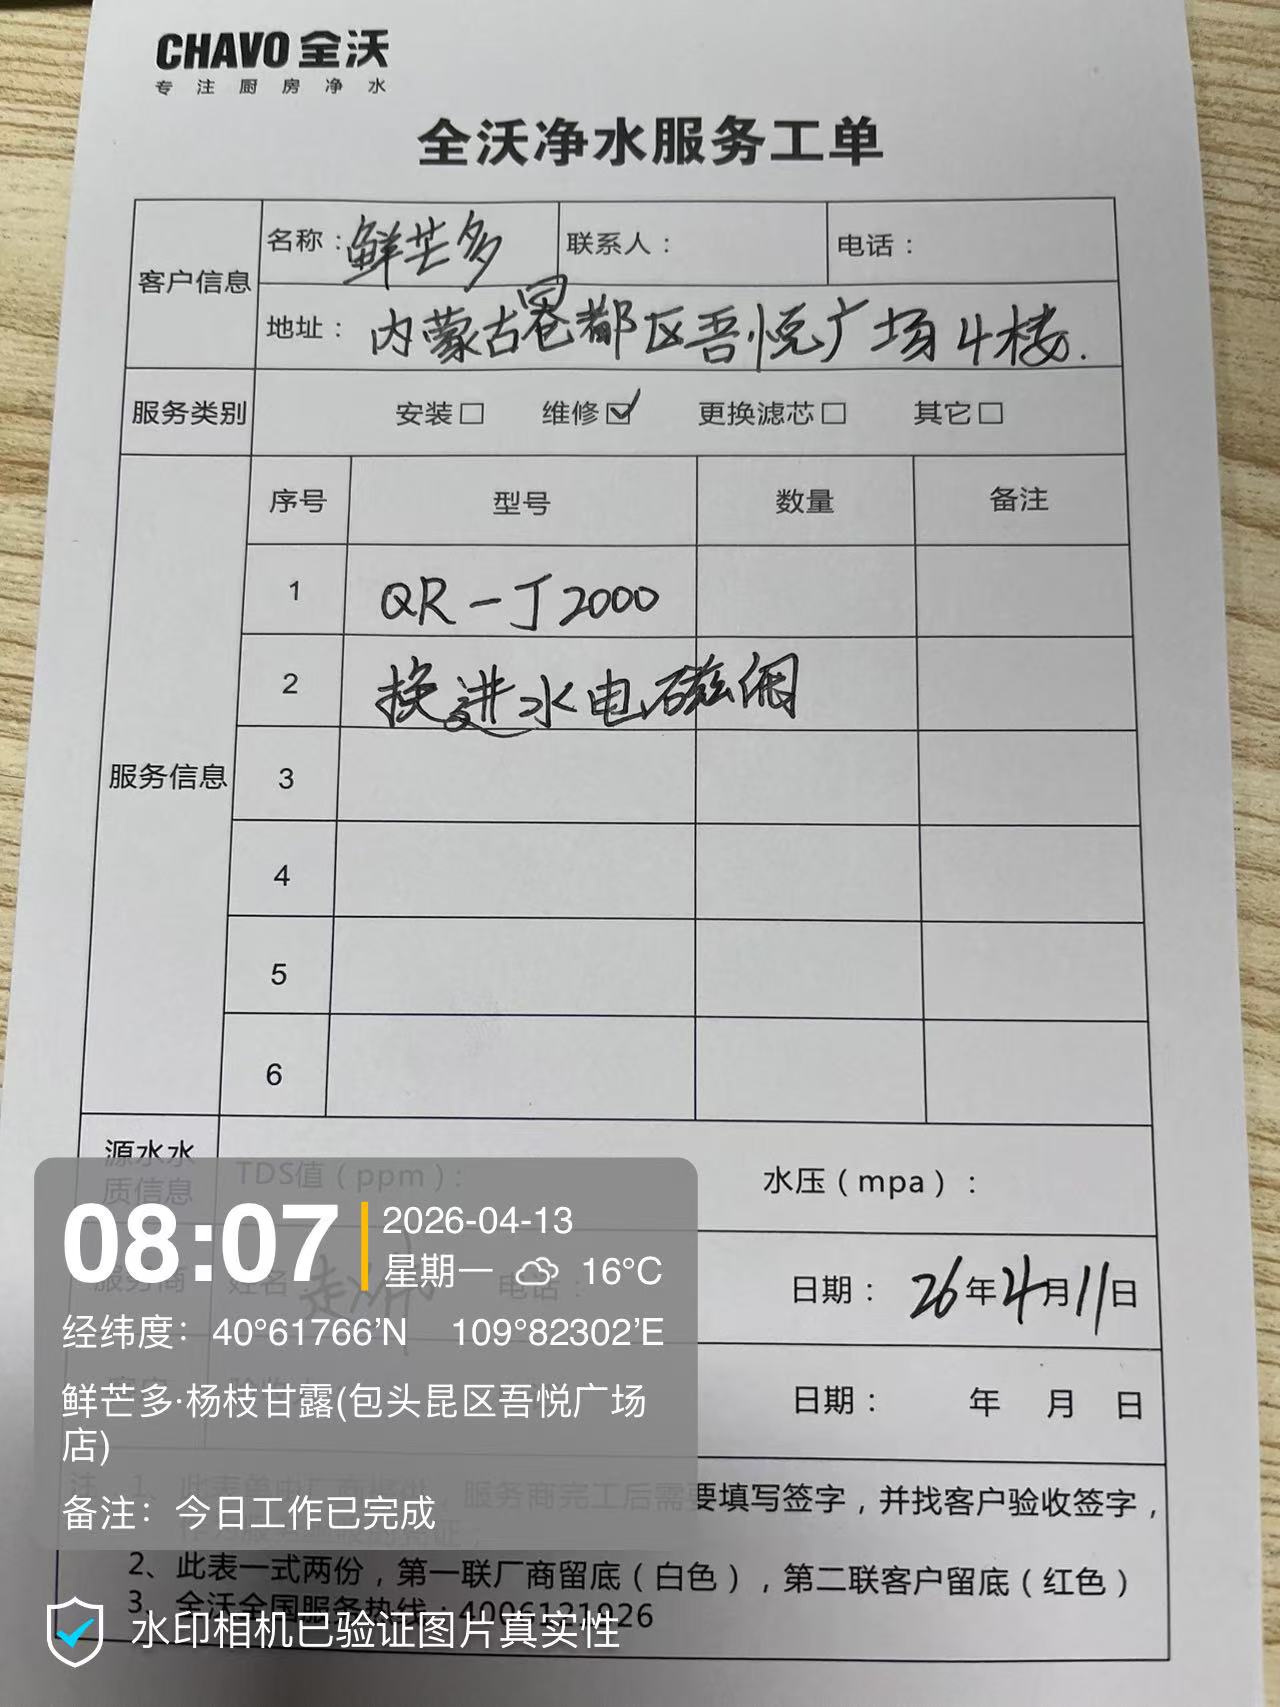 CHAVO 全沃
专注厨房净水
全沃净水服务工单
客户信息 名称：鲜芒多 联系人： 电话：
地址：内蒙古昆都区吾悦广场4楼.
服务类别 安装□ 维修☑ 更换滤芯□ 其它□
服务信息 序号 型号 数量 备注
1 QR-J2000
2 换进水电磁阀
3
4
5
6
源水水质信息 TDS值（ppm）： 水压（mpa）：
服务商 姓名 电话： 日期：26年4月11日
日期： 年 月 日
注 1、此表单由厂商提供，服务商完工后需要填写签字，并找客户验收签字，
2、此表一式两份，第一联厂商留底（白色），第二联客户留底（红色）
3、全沃全国服务热线：4006121926
08:07
2026-04-13
星期一 16°C
经纬度：40°61766'N 109°82302'E
鲜芒多·杨枝甘露(包头昆区吾悦广场
店)
备注：今日工作已完成
水印相机已验证图片真实性